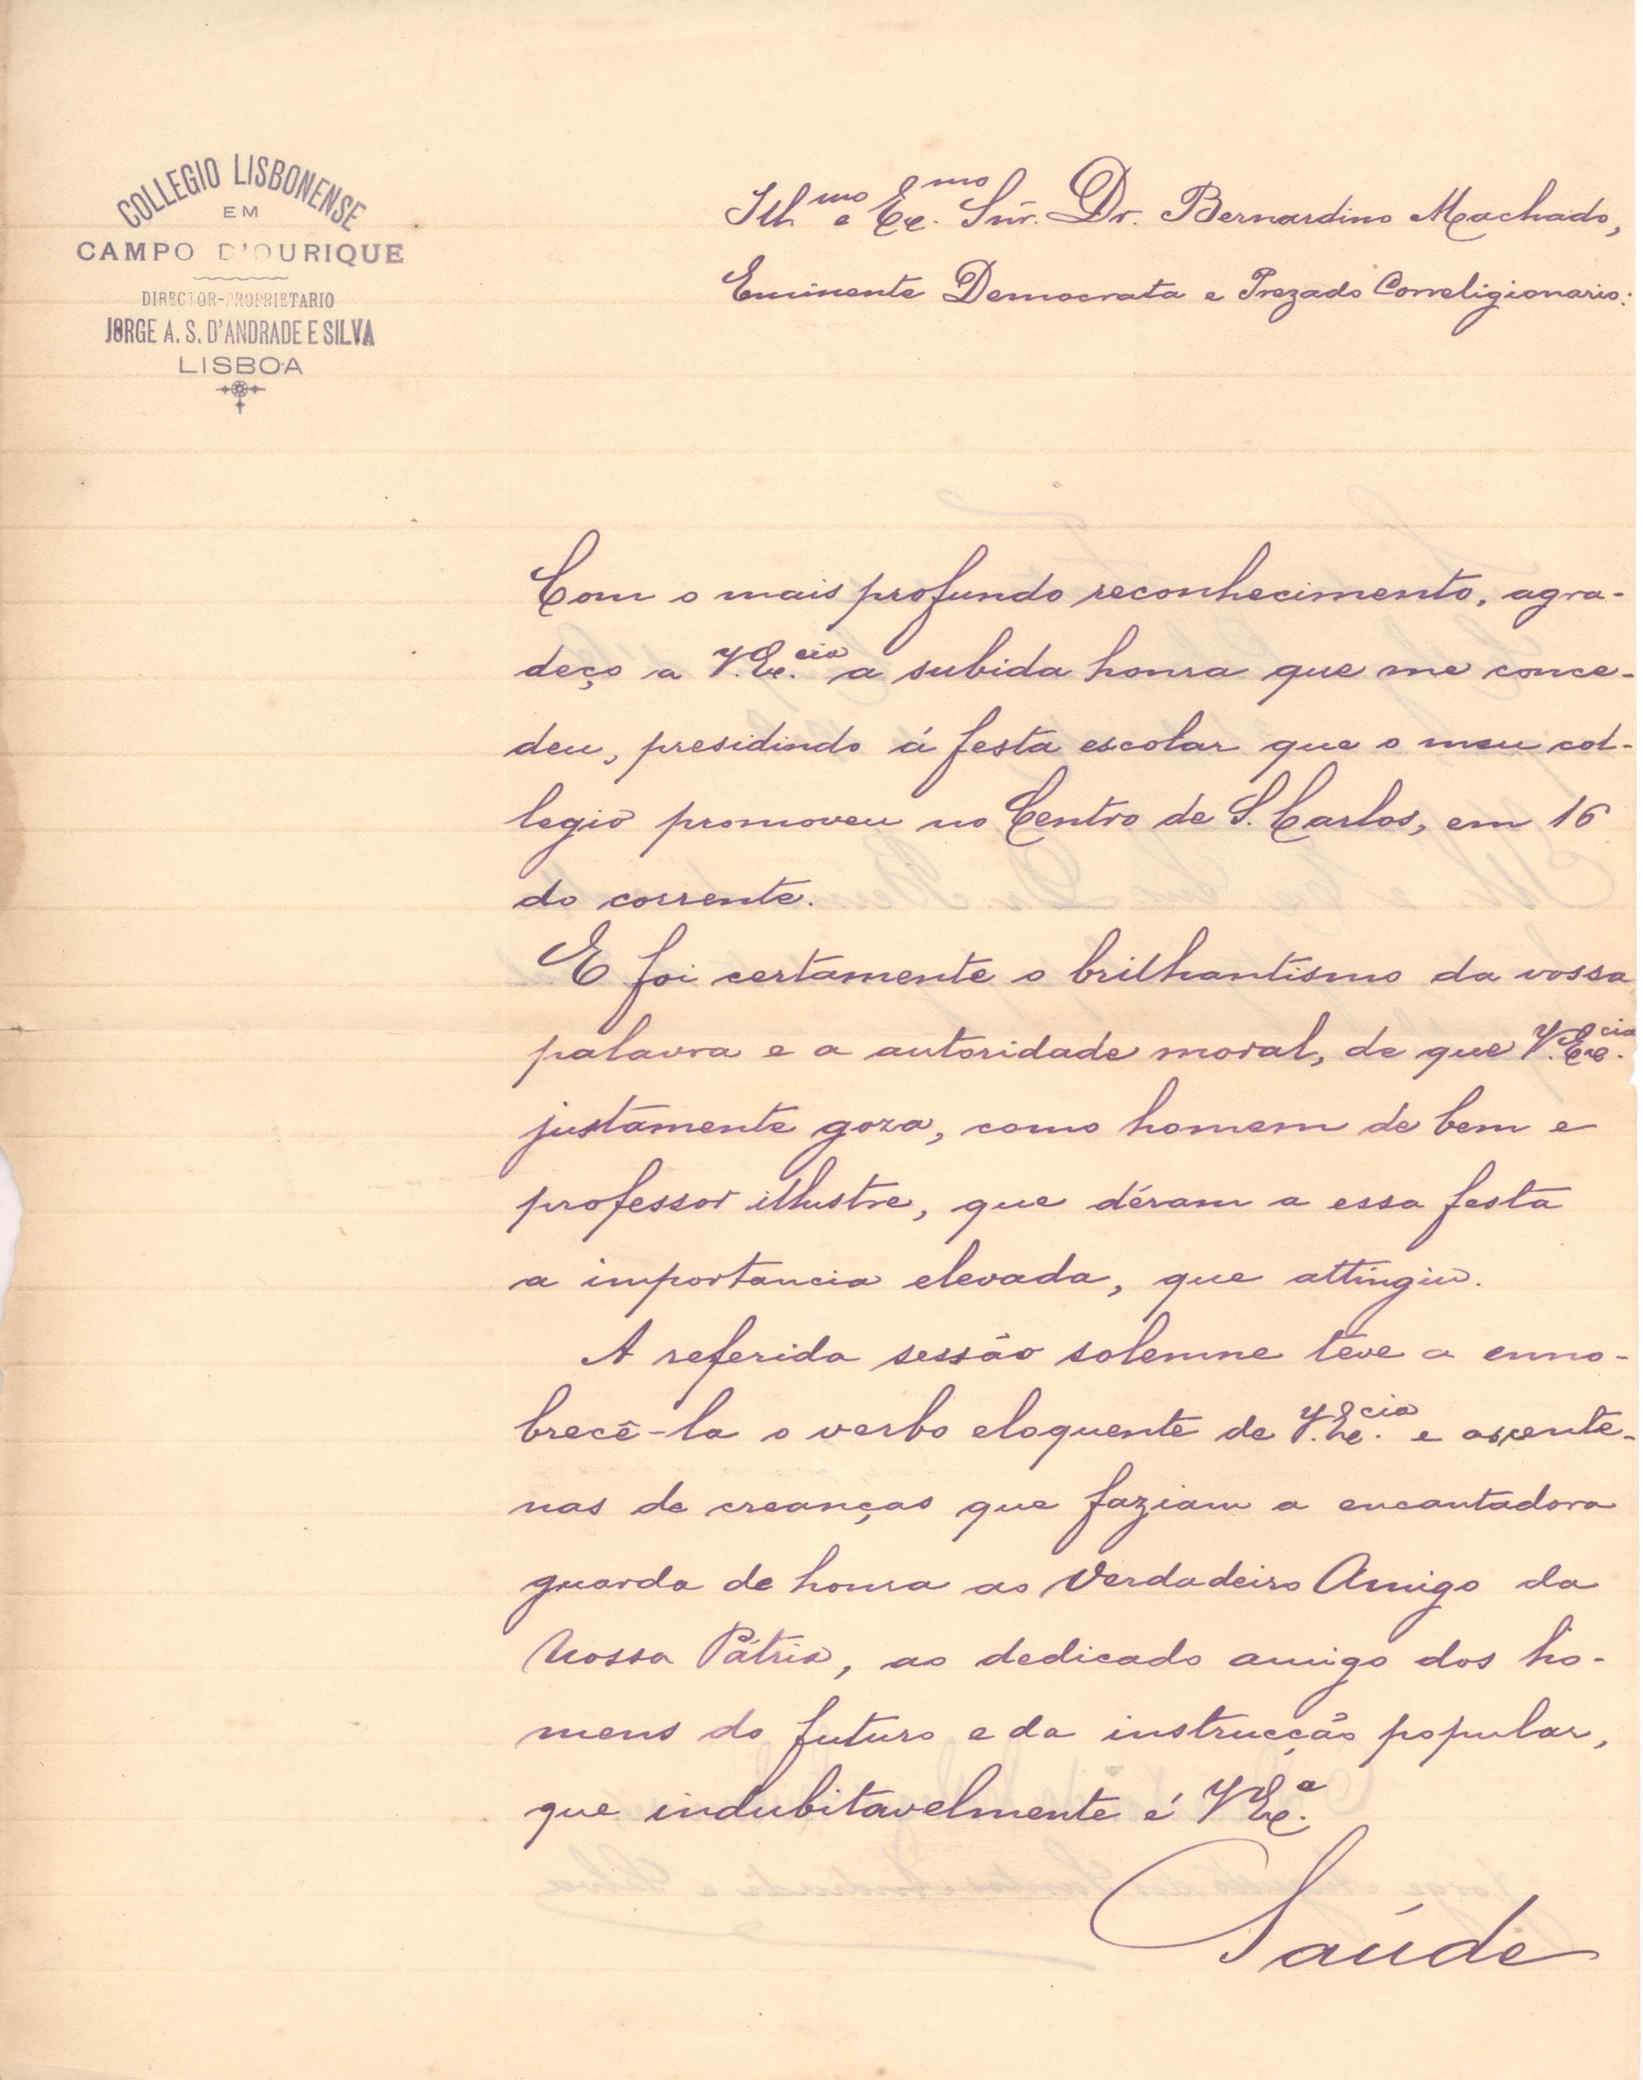 COLLEGIO LISBONENSE
EM
CAMPO D'OURIQUE
DIRECTOR-PROPRIETARIO
JORGE A. S. D'ANDRADE E SILVA
LISBOA
Ill.mo e Ex.mo Snr. Dr. Bernardino Machado,
Eminente Democrata e Prezado Correligionario:
Com o mais profundo reconhecimento, agra-
deço a V.Ex.cia a subida honra que me conce-
deu, presidindo á festa escolar que o meu col-
legio promoveu no Centro de S. Carlos, em 16
do corrente.
E foi certamente o brilhantismo da vossa
palavra e a autoridade moral, de que V.Ex.cia
justamente goza, como homem de bem e
professor illustre, que déram a essa festa
a importancia elevada, que attingiu.
A referida sessão solemne teve a enno-
brecê-la o verbo eloquente de V.Ex.cia e as cente-
nas de creanças que faziam a encantadora
guarda de honra ao Verdadeiro Amigo da
Nossa Pátria, ao dedicado amigo dos ho-
mens do futuro e da instrucção popular,
que indubitavelmente é V Ex.a
Saúde